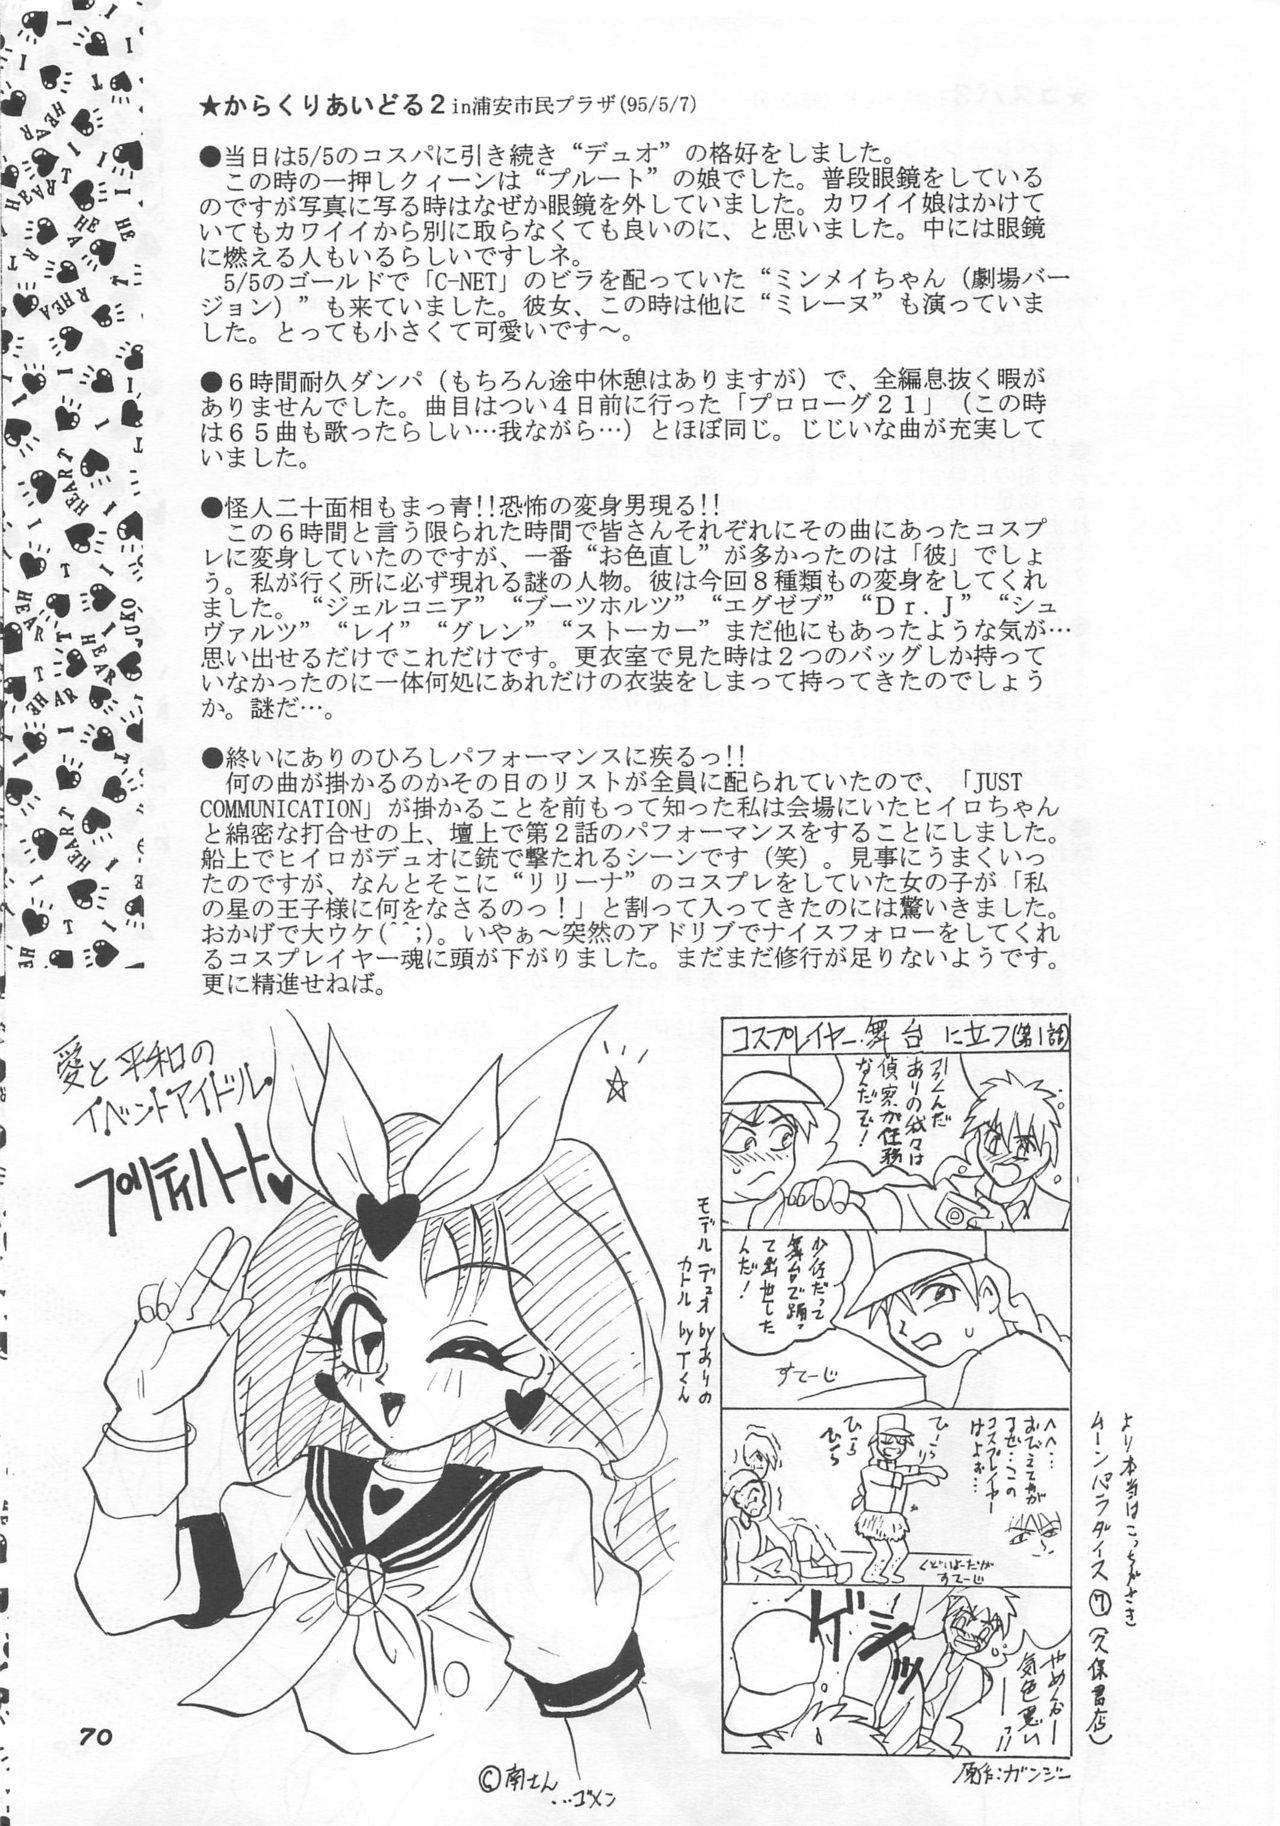 ★からくりあいどる2 in浦安市民プラザ(95/5/7)
●当日は5/5のコスパに引き続き“デュオ”の格好をしました。
この時の一押しクィーンは“プルート”の娘でした。普段眼鏡をしている
のですが写真に写る時はなぜか眼鏡を外していました。カワイイ娘はかけて
いてもカワイイから別に取らなくても良いのに、と思いました。中には眼鏡
に燃える人もいるらしいですしネ。
5/5のゴールドで「C-NET」のビラを配っていた“ミンメイちゃん（劇場バー
ジョン）”も来ていました。彼女、この時は他に“ミレーヌ”も演っていま
した。とっても小さくて可愛いです～。
●６時間耐久ダンパ（もちろん途中休憩はありますが）で、全編息抜く暇が
ありませんでした。曲目はつい４日前に行った「プロローグ２１」（この時
は６５曲も歌ったらしい…我ながら…）とほぼ同じ。じじいな曲が充実して
いました。
●怪人二十面相もまっ青!!恐怖の変身男現る!!
この６時間と言う限られた時間で皆さんそれぞれにその曲にあったコスプ
レに変身していたのですが、一番“お色直し”が多かったのは「彼」でしょ
う。私が行く所に必ず現れる謎の人物。彼は今回８種類もの変身をしてくれ
ました。“ジェルコニア”“ブーツホルツ”“エグゼブ”“Ｄｒ.Ｊ”“シュ
ヴァルツ”“レイ”“グレン”“ストーカー”まだ他にもあったような気が…
思い出せるだけでこれだけです。更衣室で見た時は２つのバッグしか持って
いなかったのに一体何処にあれだけの衣装をしまって持ってきたのでしょう
か。謎だ…。
●終いにありのひろしパフォーマンスに疾るっ!!
何の曲が掛かるのかその日のリストが全員に配られていたので、「JUST
COMMUNICATION」が掛かることを前もって知った私は会場にいたヒイロちゃん
と綿密な打合せの上、壇上で第２話のパフォーマンスをすることにしました。
船上でヒイロがデュオに銃で撃たれるシーンです（笑）。見事にうまくいっ
たのですが、なんとそこに“リリーナ”のコスプレをしていた女の子が「私
の星の王子様に何をなさるのっ！」と割って入ってきたのには驚いきました。
おかげで大ウケ(^^;)。いやぁ～突然のアドリブでナイスフォローをしてくれ
るコスプレイヤー魂に頭が下がりました。まだまだ修行が足りないようです。
更に精進せねば。
愛と平和の
イベントアイドル・
プリティハート♥
コスプレイヤー舞台に立つ(第1話)
ありの我々は
偵察が任務
なんだぞ！
少佐だって
舞台で踊っ
てました
んだ！
すてーじ
コスプレイヤー
けよぉ…
ひーら
ひーら
すてーじ
ゲシッ
やめんかー
気色悪い
ー!!
原作:ガンジー
モデル デュオ by ありの
カトル by Tくん
より本当はこっちがさき
ムーンパラダイス⑦(久保書店)
©南さん
…ゴメン
70